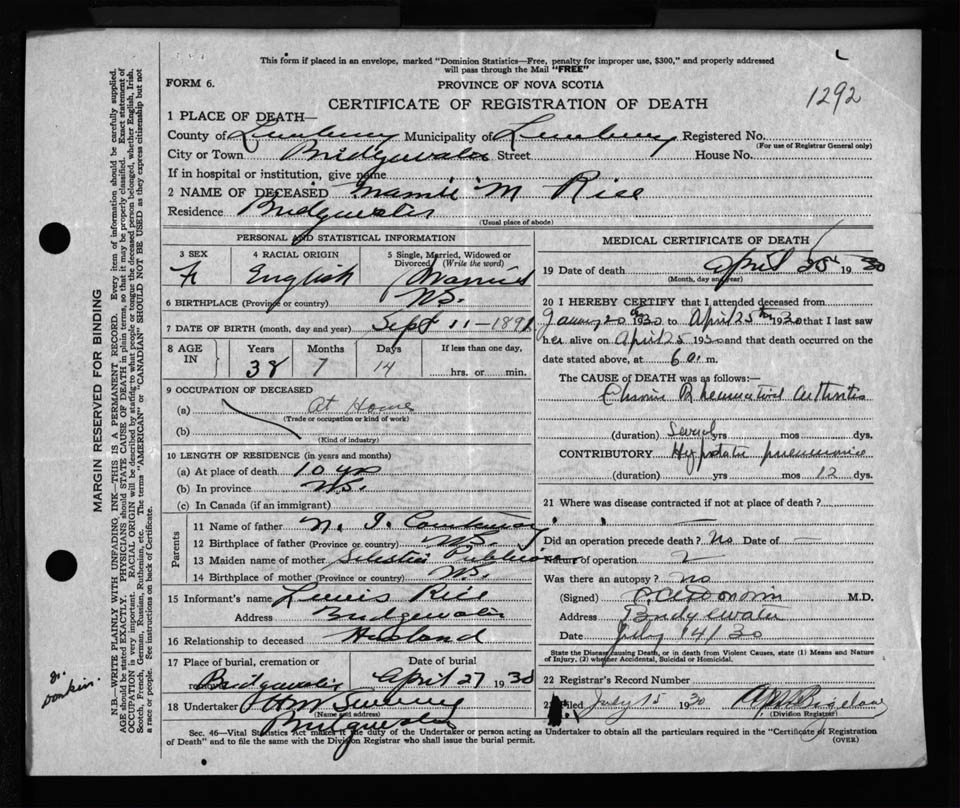 This form if placed in an envelope, marked "Dominion Statistics—Free, penalty for improper use, $300," and properly addressed
will pass through the Mail "FREE"
1292
FORM 6.
PROVINCE OF NOVA SCOTIA
CERTIFICATE OF REGISTRATION OF DEATH
1 PLACE OF DEATH—
County of Lunenburg Municipality of Lunenburg Registered No.
(For use of Registrar General only)
City or Town Bridgewater Street House No.
If in hospital or institution, give name
2 NAME OF DECEASED Mamie M Rice
Residence Bridgewater
(Usual place of abode)
PERSONAL AND STATISTICAL INFORMATION
3 SEX
4 RACIAL ORIGIN
5 Single, Married, Widowed or
Divorced (Write the word)
F English Married
N.S.
6 BIRTHPLACE (Province or country)
7 DATE OF BIRTH (month, day and year) Sept 11-1891
8 AGE
IN
Years Months Days If less than one day,
38 7 14 hrs. or min.
9 OCCUPATION OF DECEASED
(a) At Home
(Trade or occupation or kind of work)
(b)
(Kind of industry)
10 LENGTH OF RESIDENCE (in years and months)
(a) At place of death 10 yrs
(b) In province N.S.
(c) In Canada (if an immigrant)
Parents
11 Name of father N. I.
12 Birthplace of father (Province or country) N.S.
13 Maiden name of mother
14 Birthplace of mother (Province or country) N.S.
15 Informant's name Lewis Rice
Address Bridgewater
16 Relationship to deceased Husband
17 Place of burial, cremation or
removal
Date of burial
Bridgewater April 27 1930
18 Undertaker
(Name and address)
Bridgewater
MEDICAL CERTIFICATE OF DEATH
19 Date of death April 25th 1930
(Month, day and year)
20 I HEREBY CERTIFY that I attended deceased from
January 20th 1930 to April 25th 1930 that I last saw
her alive on April 25 1930 and that death occurred on the
date stated above, at 6 a. m.
The CAUSE OF DEATH was as follows:—
Chronic Rheumatoid Arthritis
(duration) Several yrs mos dys.
CONTRIBUTORY Hypostatic pneumonia
(duration) yrs mos 12 dys.
21 Where was disease contracted if not at place of death?
Did an operation precede death? no Date of —
Nature of operation
Was there an autopsy? no
(Signed) M.D.
Address Bridgewater
Date July 14/30
State the Disease causing Death, or in death from Violent Causes, state (1) Means and
Nature of Injury, (2) whether Accidental, Suicidal or Homicidal.
22 Registrar's Record Number
23 Filed July 15 1930 Bigelow
(Division Registrar)
Sec. 46—Vital Statistics Act makes it the duty of the Undertaker or person acting as Undertaker to obtain all the particulars required in the "Certificate of Registration
of Death" and to file the same with the Division Registrar who shall issue the burial permit.
(OVER)
MARGIN RESERVED FOR BINDING
N.B.—WRITE PLAINLY WITH UNFADING INK—THIS IS A PERMANENT RECORD. Every item of information should be carefully supplied.
AGE should be stated EXACTLY. PHYSICIANS should STATE CAUSE OF DEATH in plain terms, so that it may be properly classified. Exact statement of
OCCUPATION is very important. RACIAL ORIGIN will be described by stating to what people or tongue the deceased person belonged, whether English, Irish,
Scotch, French, German, Russian, Ruthenian, etc. The terms "AMERICAN" or "CANADIAN" SHOULD NOT BE USED as they express citizenship but not
a race or people. See instructions on back of Certificate.
Dr.
Donkin.